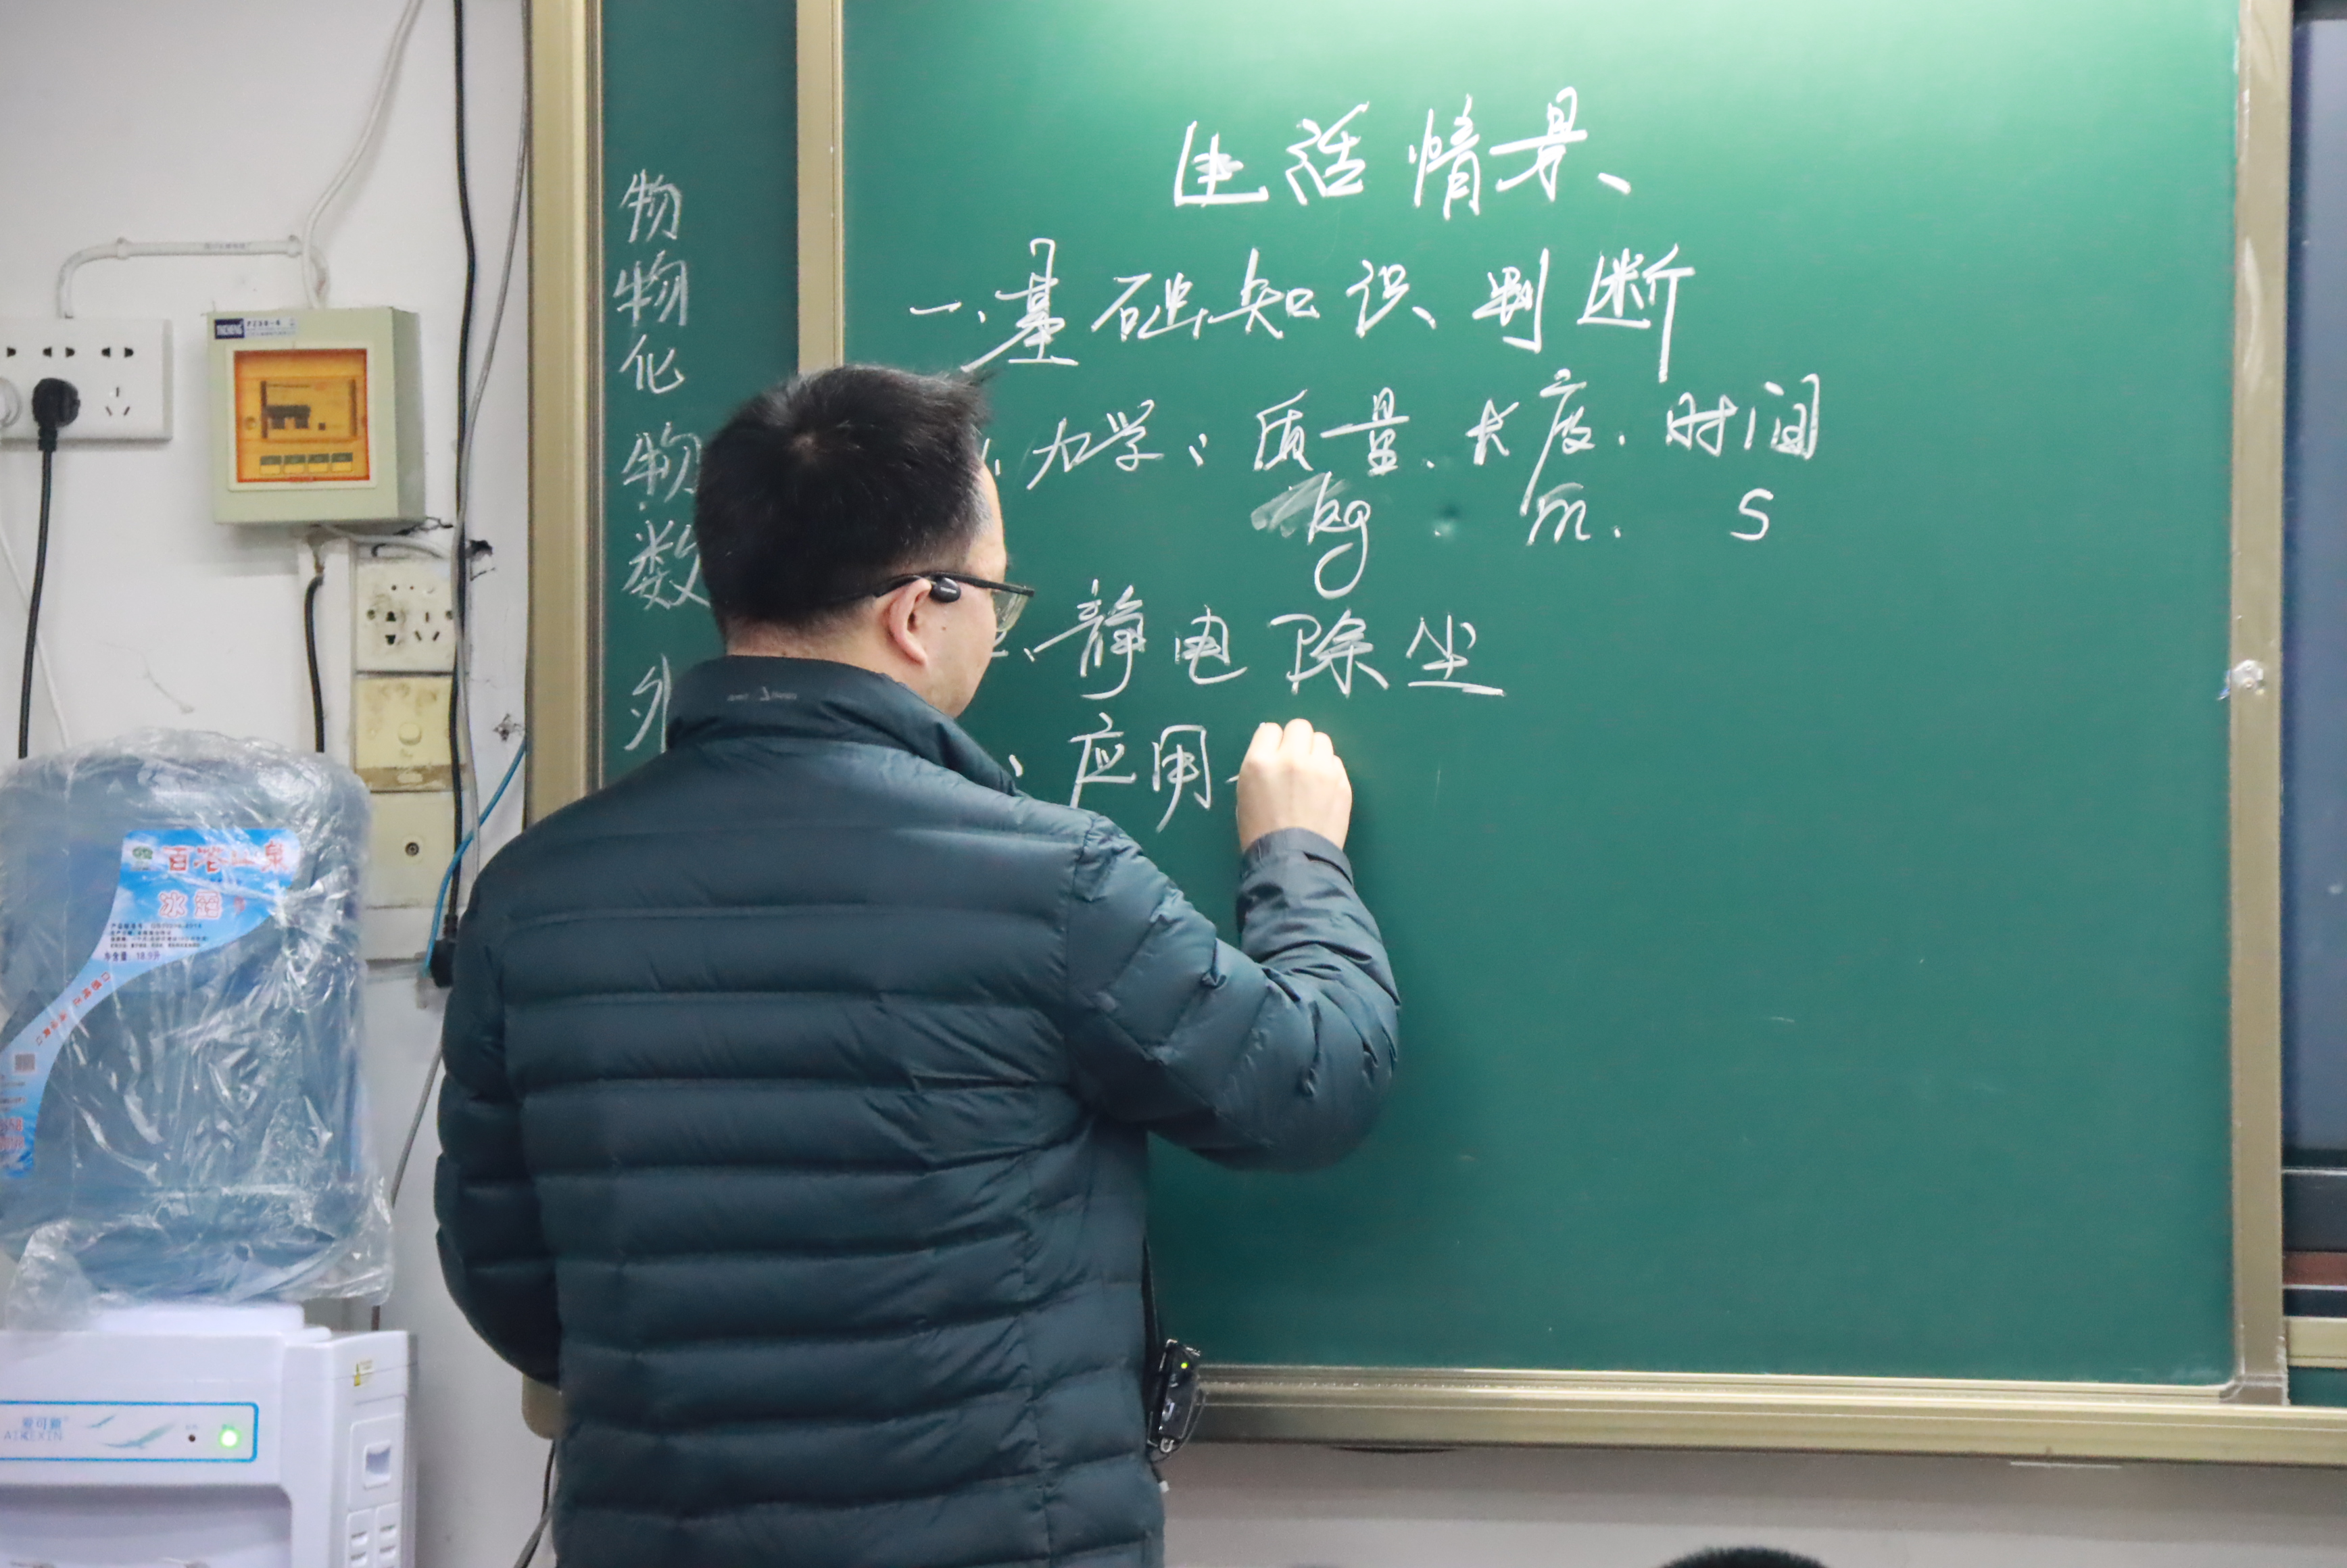 物
物
化
物
数
外
生活情景、
一、基础知识判断
1、力学：质量、长度、时间
kg m. s
二、静电除尘
、应用
冰露
净含量 18.9升
爱可馨
AIKEXIN